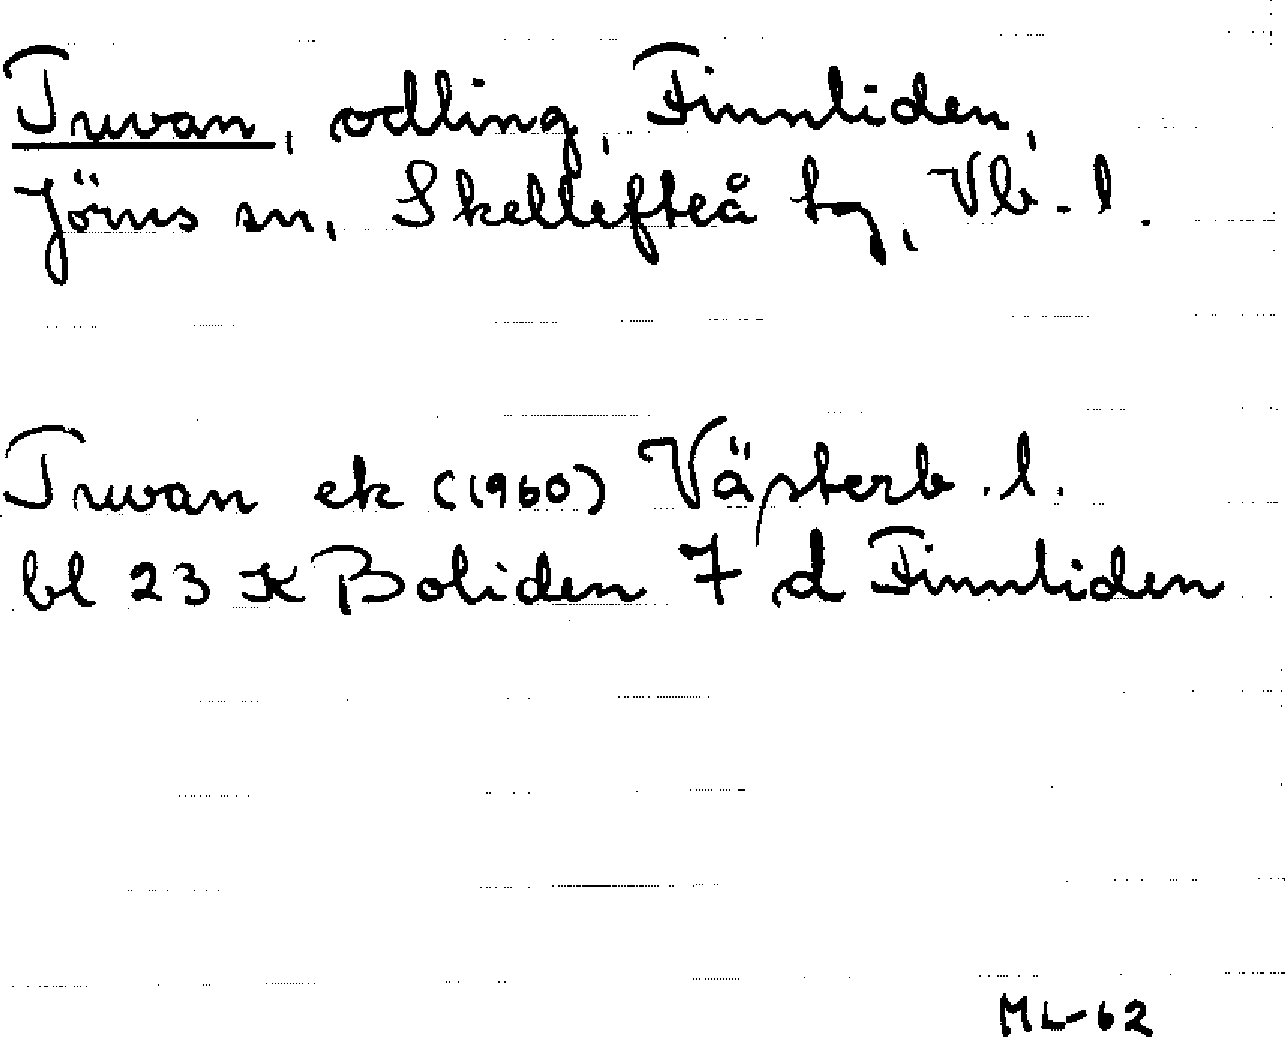 Truvan, odling, Finnliden,
Jörns sn, Skellefteå tg, Vb. l.
Truvan ek (1960) Västerb. l.
bl 23 K Boliden 7 d Finnliden
ML-62